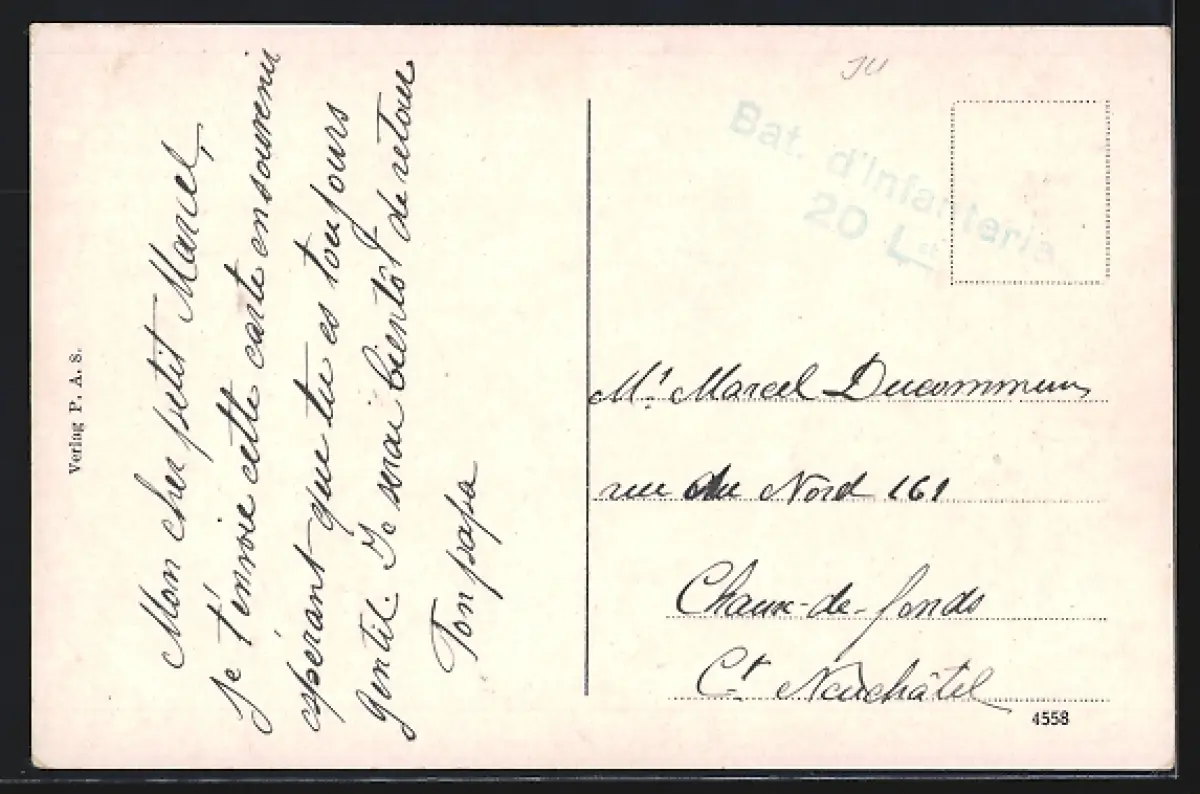 Mon cher petit Marcel,
je t'envoie cette carte en souvenir
espérant que tu es toujours
gentil. Je serai bientôt de retour
Ton papa
Verlag P. A. S.
JU
Bat. d'Infanterie
20 Lst
Mr. Marcel Ducommun
rue du Nord 161
Chaux-de-fonds
Ct Neuchâtel
4558